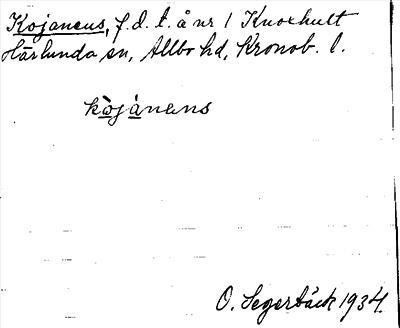 Kojanens, f.d. t. å nr 1 Knoxhult
Härlunda sn, Allbo hd, Kronob. l.
kòjànens
O. Segerbäck 1934.